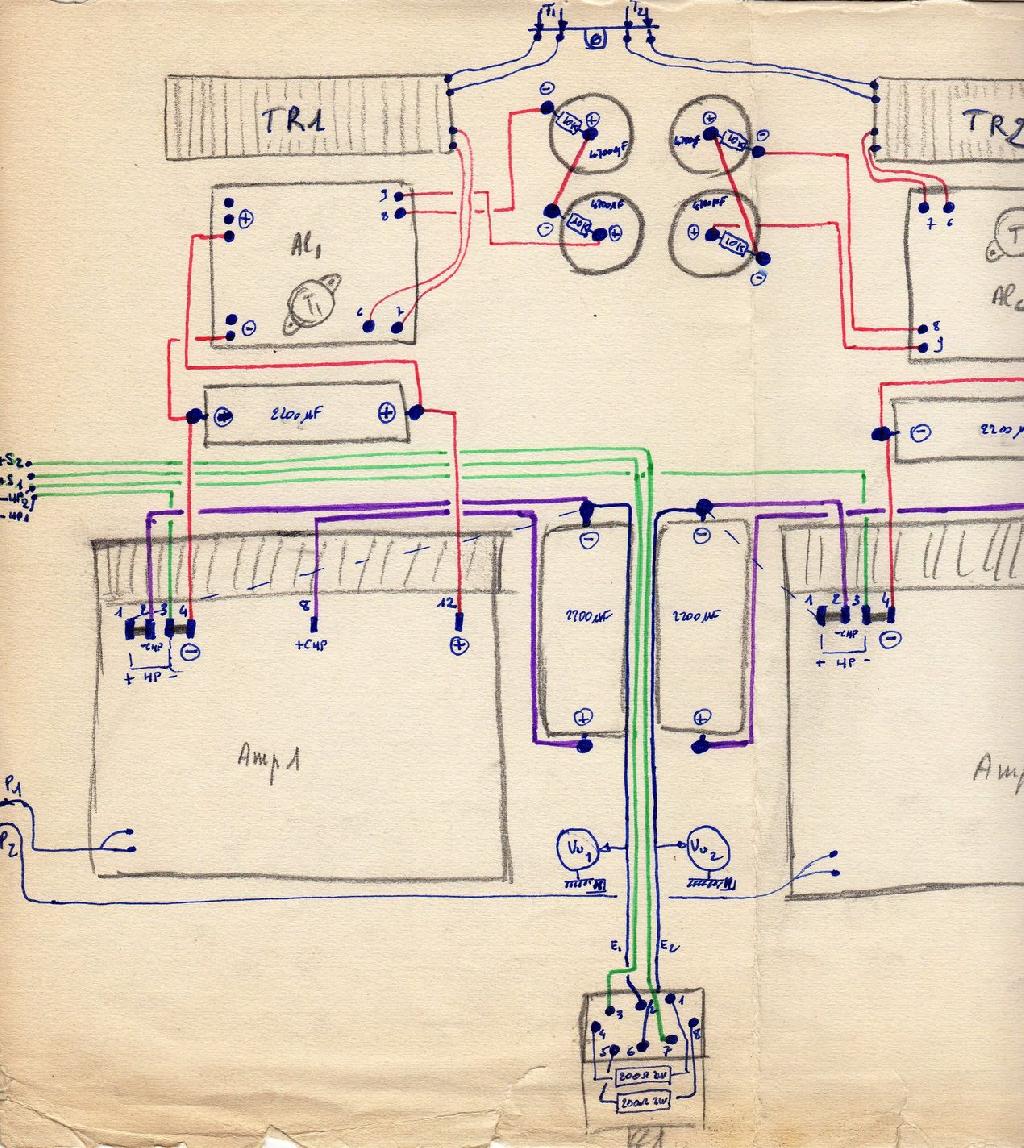 T1 T2
TR1
TR2
⊖
10K ⊕
4700µF
⊕ 10K ⊖
4700µF
4700µF
⊖ 10K ⊕
4700µF
⊕ 10K
⊖
⊕
Al1
9
8
T1
6 7
⊖
7 6
T
Al
8
9
⊕ 2200µF ⊕
⊖ 2200µ
+S2
+S1
-HP2
-HP1
1 2 3 4
-CHP
+ HP -
⊖
8
+CHP
12
⊕
⊖
2200µF
⊕
⊖
2200µF
⊕
1 2 3 4
-CHP
+ HP -
⊖
Amp1
Amp
P1
P2
Vu1
Vu2
E1 E2
3 2 1
4 8
5 6 7
200Ω 2W
200Ω 2W